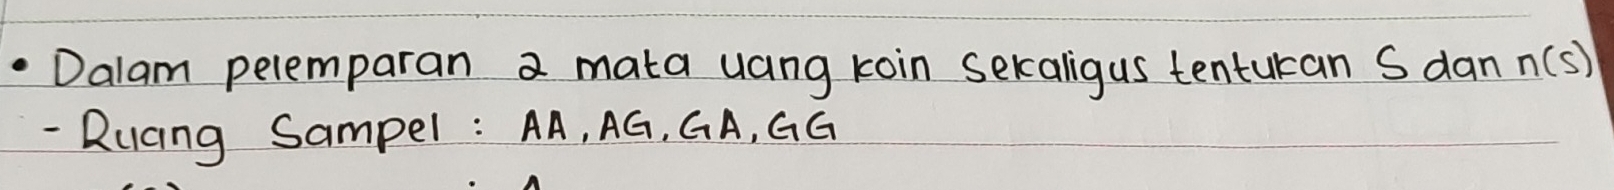 • Dalam pelemparan 2 mata uang koin sekaligus tentukan S dan n(s)
- Ruang Sampel : AA, AG, GA, GG